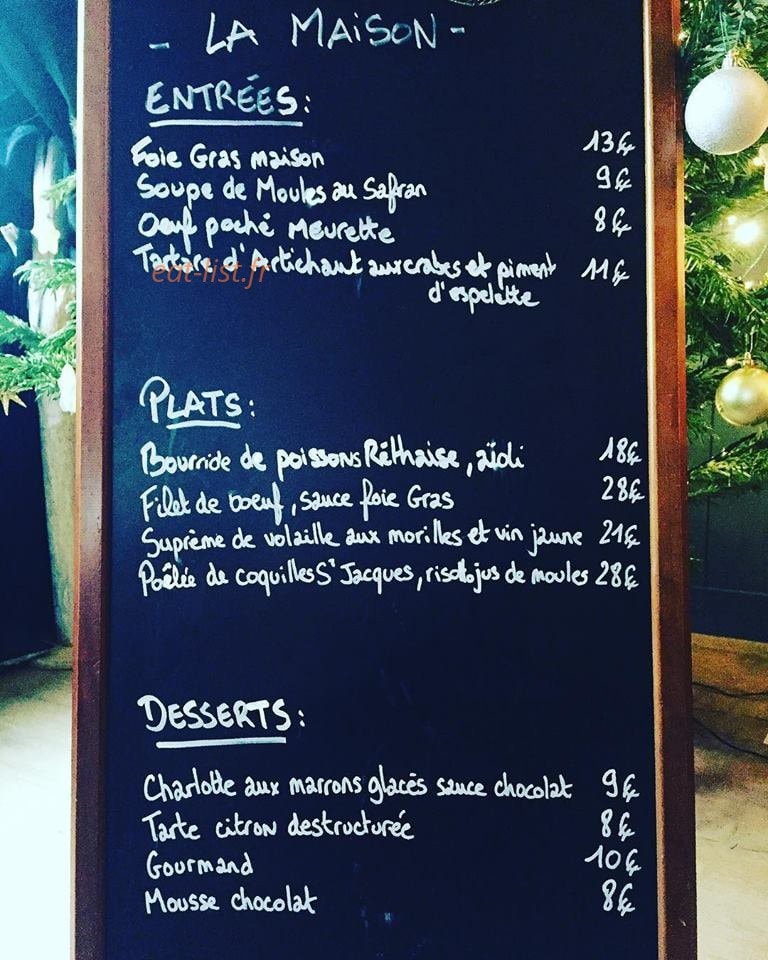 - LA MAiSON -
ENTRÉES:
Foie Gras maison 13€
Soupe de Moules au Safran 9€
Oeuf poché Meurette 8€
Tartare d'Artichaut aux crabes et piment 11€
eat-list.fr
d'espelette
PLATS:
Bourride de poissons Réthaise, aïoli 18€
Filet de boeuf, sauce foie Gras 28€
Suprème de volaille aux morilles et vin jaune 21€
Poêlée de coquilles St Jacques, risotto jus de moules 28€
DESSERTS:
Charlotte aux marrons glacés sauce chocolat 9€
Tarte citron destructurée 8€
Gourmand 10€
Mousse chocolat 8€